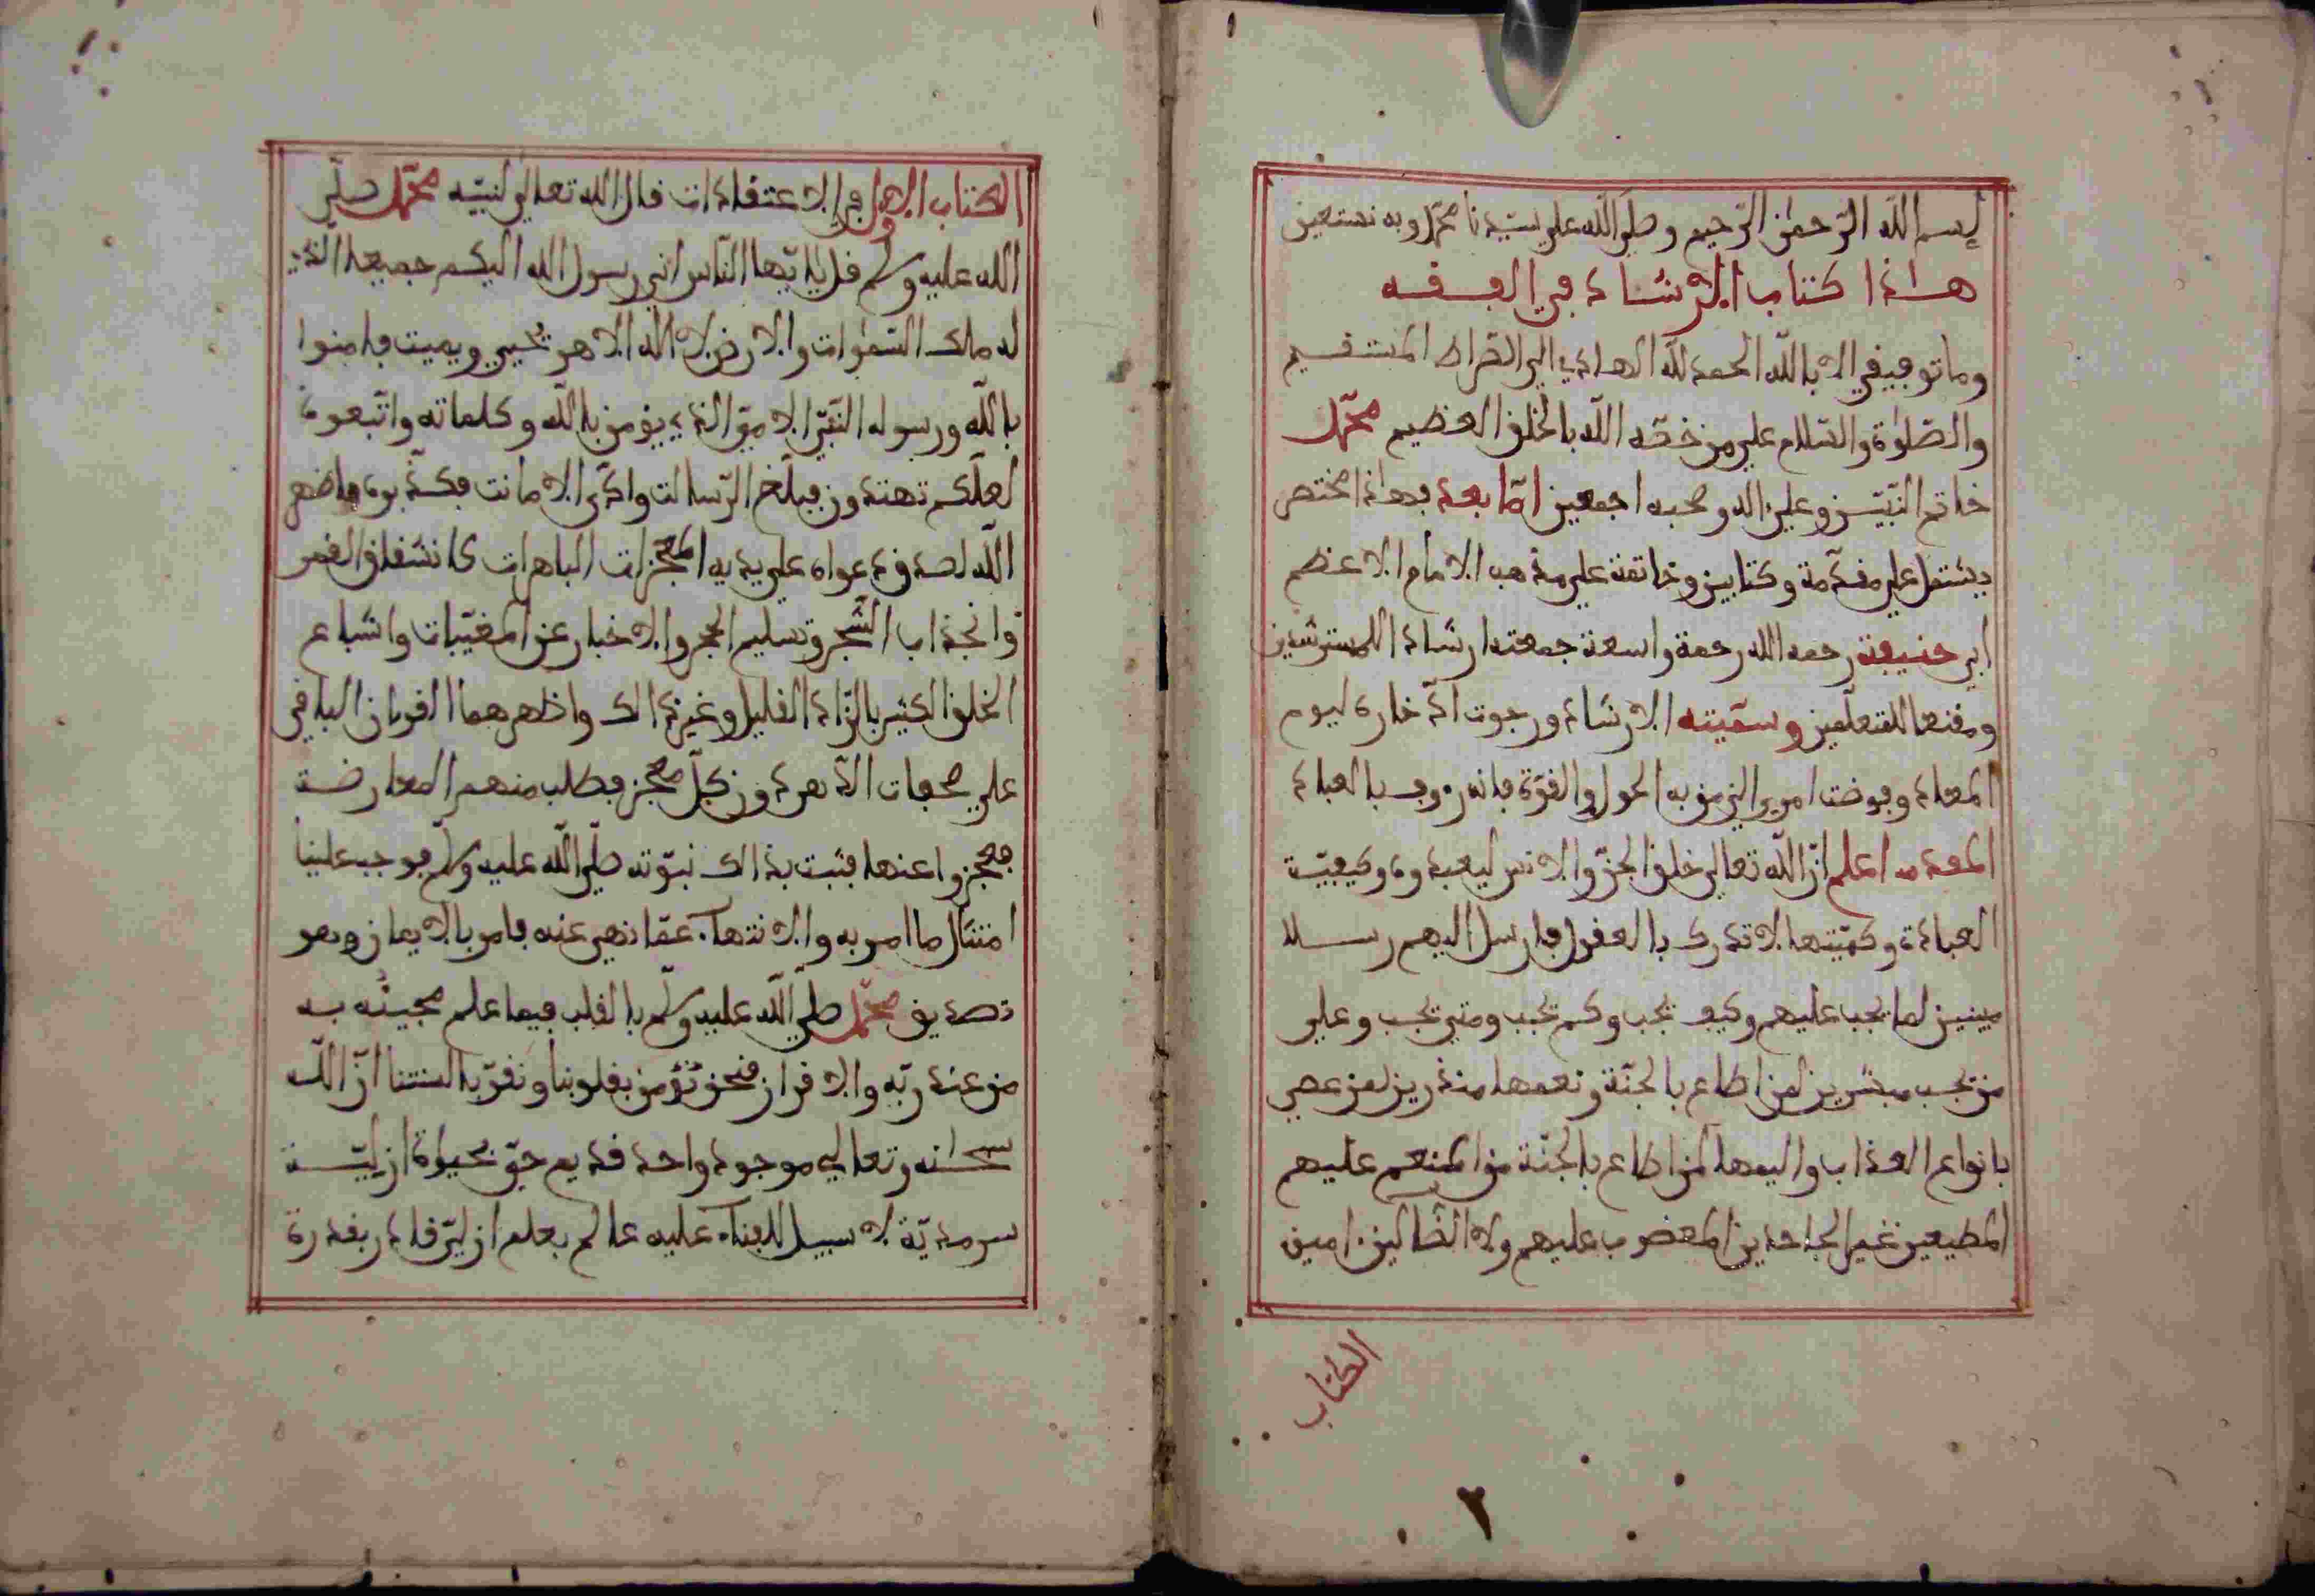 بسم الله الرّحمٰن الرّحيم وصلى الله على سيّدنا محمّد وبه نستعين
هاذا كتاب الارشاد في الفقه
وما توفيقي الا بالله الحمد لله الهادي الى الصّراط المستقيم
والصّلوٰة والسّلام على من خصّه الله بالخلق العظيم محمّد
خاتم النّبيّين وعلى اله وصحبه اجمعين امّا بعد فهاذا مختصر
يشتمل على مقدّمة وكتابين وخاتمة على مذهب الامام الاعظم
ابي حنيفة رحمه الله رحمة واسعة جمعته ارشادا للمسترشدين
ومقنعا للمتعلّمين وسمّيته الارشاد ورجوت ادّخاره ليوم
المعاد وفوضت امري الى من به الحول والقوّة فانه رءوف بالعباد
المقدمة اعلم انّ الله تعالى خلق الجنّ والانس ليعبدوه وكيفيّة
العبادة وكمّيّتها لا تدرك بالعقول فارسل اليهم رسلا
مبينين لما يجب عليهم وكيف يجب وكم تجب ومتى تجب وعلى
من تجب مبشرين لمن اطاع بالجنّة ونعمها منذرين لمن عصى
بانواع العذاب واليمها لمن اطاع بالجنّة من المنعم عليهم
المطيعين غير الجاحدين المغضوب عليهم ولا الضّالين امين
الكتاب
٢
الكتاب الاول في الاعتقادات قال الله تعالى لنبيّه محمّد صلّى
الله عليه وسلم قل يٰايّها النّاس اني رسول الله اليكم جميعا الّذي
له ملك السّمٰوات والارض لا الٰه الا هو يحيي ويميت فامنوا
بالله ورسوله النّبيّ الامّيّ الذي يؤمن بالله وكلماته واتّبعوه
لعلّكم تهتدون فبلّغ الرّسالت وادّى الامانت فكذّبوه فاظهر
الله لصدق دعواه على يديه المعجزات الباهرات كانشقاق القمر
وانجذاب الشّجر وتسليم الحجر والاخبار عن المغيّبات واشباع
الخلق الكثير بالزّاد القليل وغير ذالك واظهرهما القرءان الباقي
على صفحات الدّهر دون كلّ معجز فطلب منهم المعارضة
فعجزوا عنها فثبت بذالك نبوّته صلّى الله عليه وسلّم فوجب علينا
امتثال ما امر به والانتهاء عمّا نهى عنه فامر بالايمان وهو
تصديق محمّد صلّى الله عليه وسلّم بالقلب فيما علم مجيئه به
من عند ربّه والاقرار فنحن نؤمن بقلوبنا ونقرّ بالسنتنا انّ اللّه
سبحانه وتعالى موجود واحد قديم حيّ بحيوٰة ازليّة
سرمديّة لا سبيل للفناء عليه عالم بعلم ازليّ قادر بقدرة